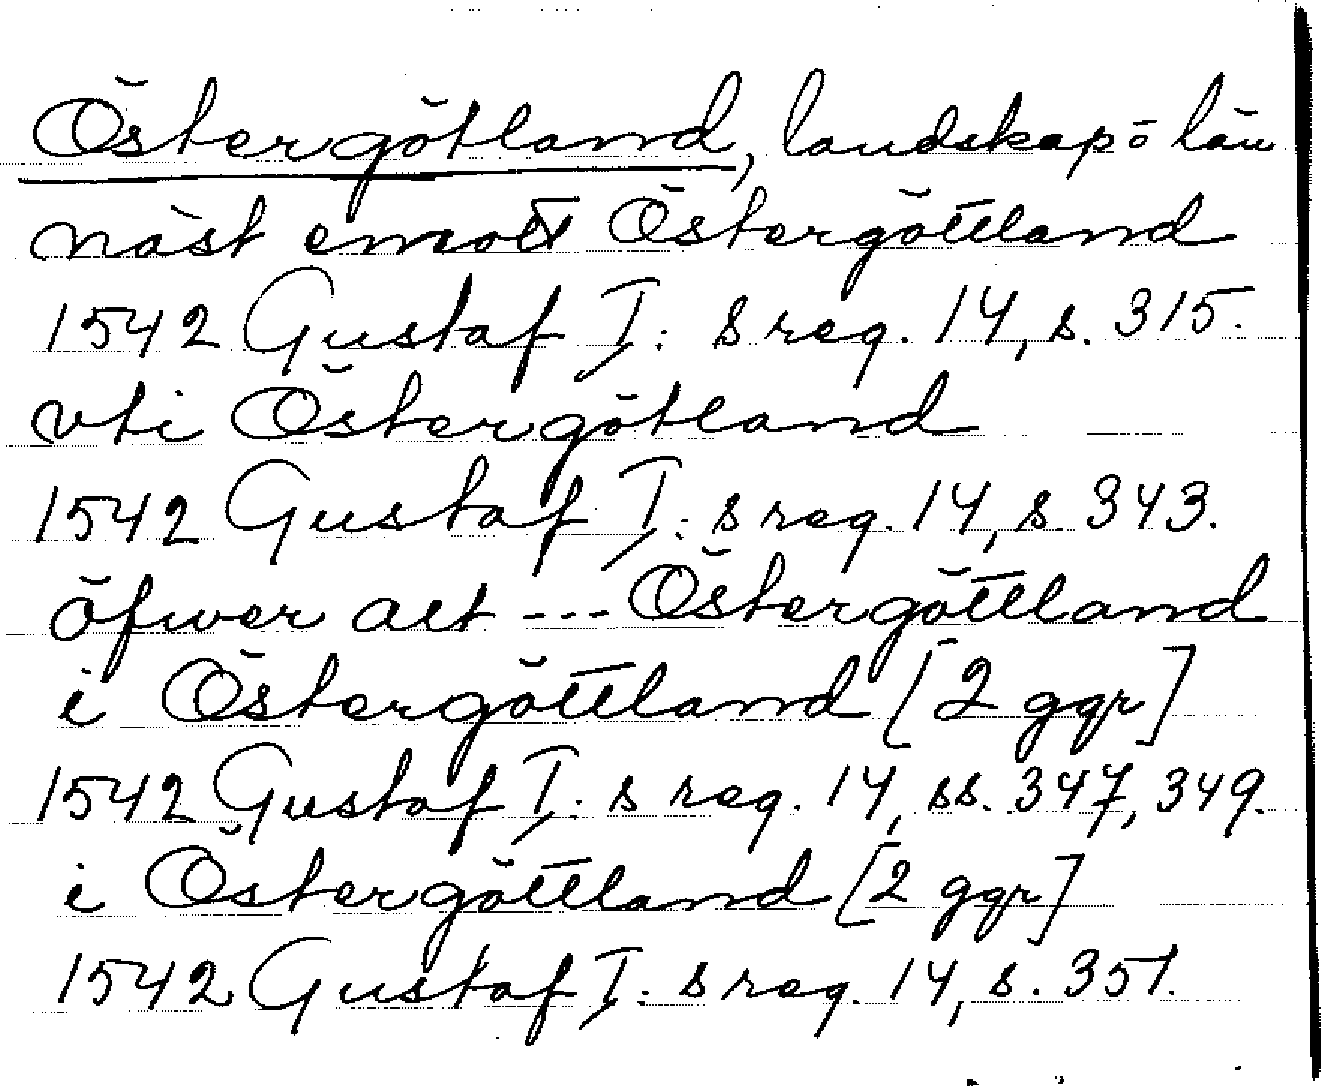 Östergötland, landskap o län
näst emott Östergöttland
1542 Gustaf I:s reg. 14, s. 315.
vti Östergötland
1542 Gustaf I:s reg. 14, s. 343.
öfwer alt --- Östergöttland
i Östergöttland [2 ggr]
1542 Gustaf I:s reg. 14, ss. 347, 349.
i Östergöttland [2 ggr]
1542 Gustaf I:s reg. 14, s. 351.